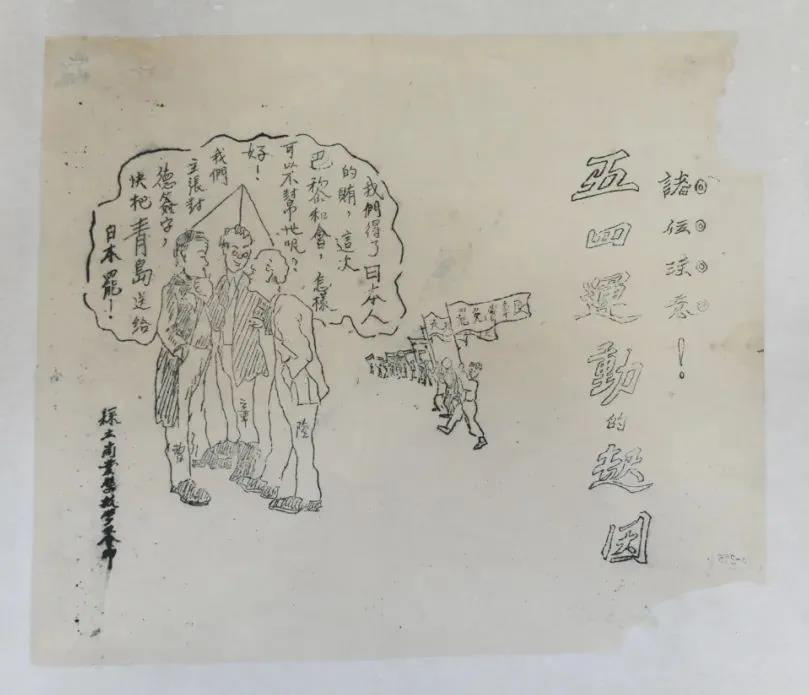 諸位注意！
五四運動的起因
我們得了日本人
的賄，這次
巴黎和會，怎樣
可以不幫他呢？
好！
我們
主張對
德簽字，
快把青島送給
日本罷！
罷免曹章
陸
章
曹
商業學校學生會印